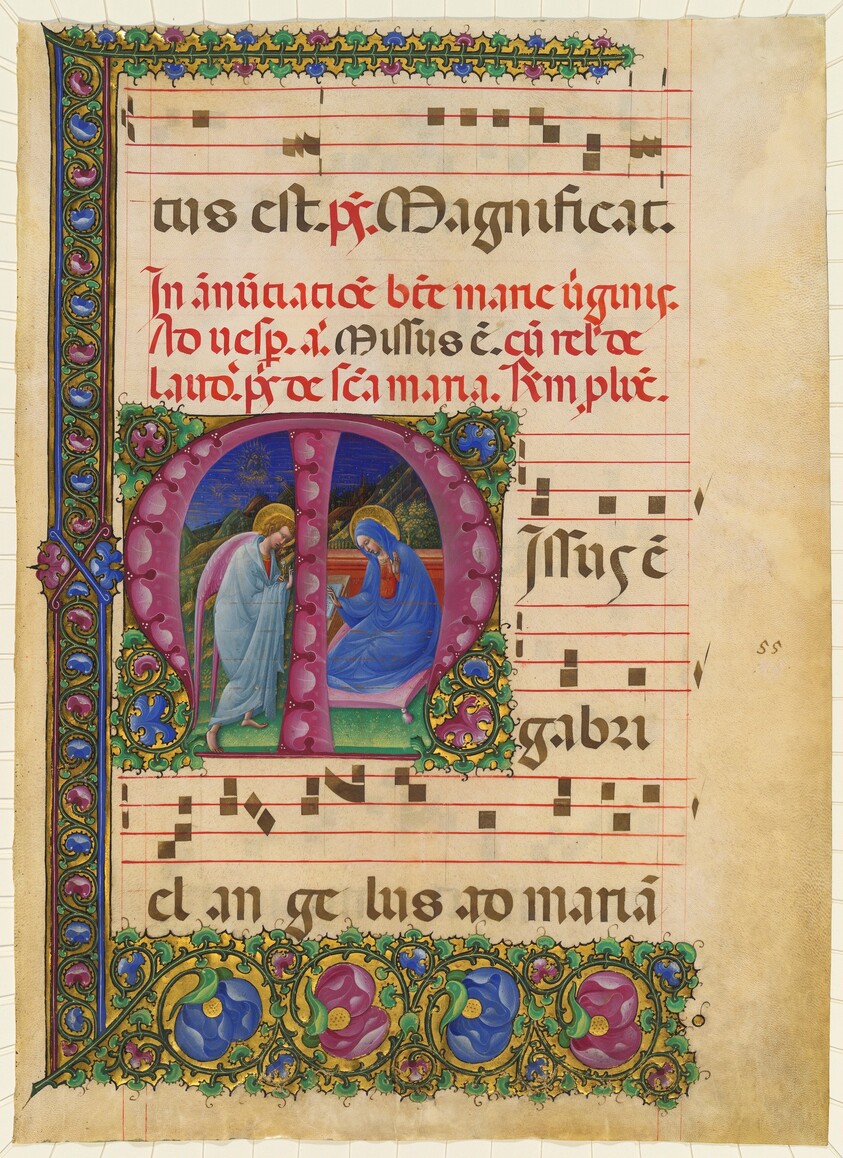 tus est. p̄s. Magnificat.
In ānūtiatiōe bēte marie ūginis.
Ad uesp. a. Missus ē. cū rel' de
laud. p̄s de scā maria. R̄m plx̄.
Missus ē
gabri
55
el an ge lus ad mariā